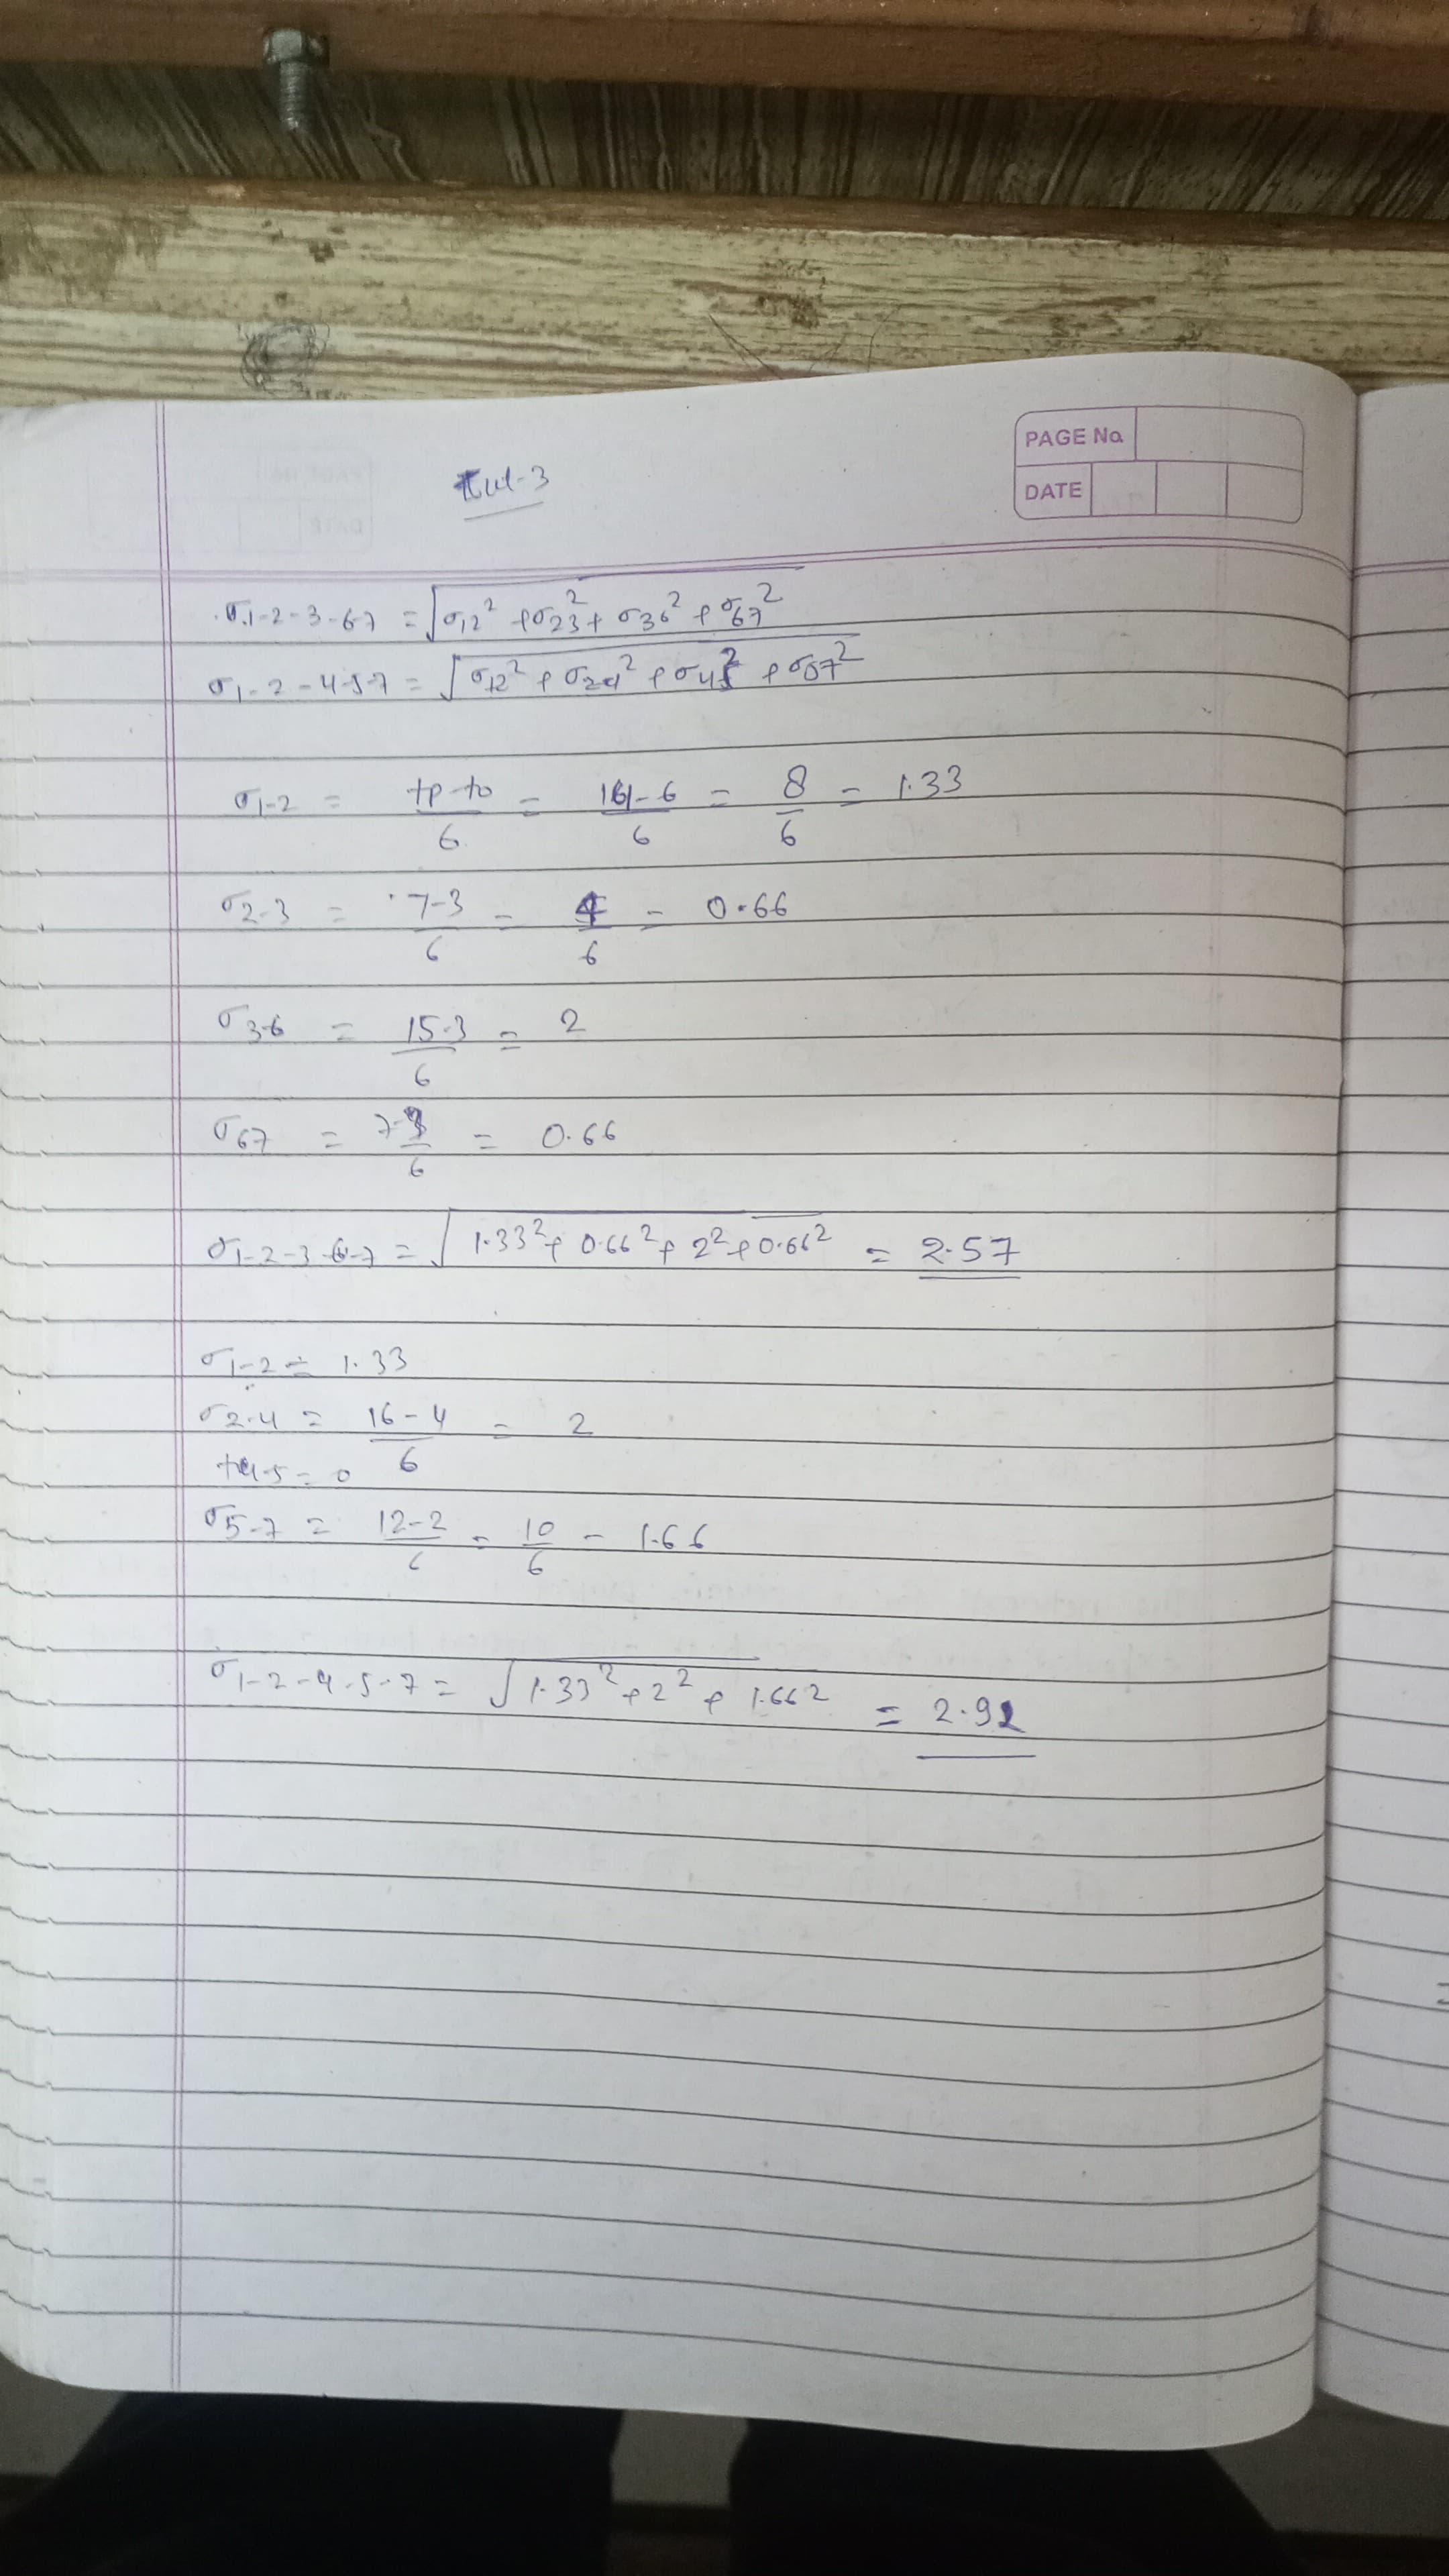 PAGE No
DATE
Tut-3
σ1-2-3-6-7 = √σ12² + σ23² + σ36² + σ67²
σ1-2-4-5-7 = √σ12² + σ24² + σ45² + σ57²
σ1-2 = tp-to/6 = 14-6/6 = 8/6 = 1.33
σ2-3 = 7-3/6 = 4/6 = 0.66
σ3-6 = 15-3/6 = 2
σ67 = 7-3/6 = 0.66
σ1-2-3-6-7 = √1.33² + 0.66² + 2² + 0.66² = 2.57
σ1-2 = 1.33
σ2-4 = 16-4/6 = 2
t4-5 = 0
σ5-7 = 12-2/6 = 10/6 = 1.66
σ1-2-4-5-7 = √1.33² + 2² + 1.66² = 2.92